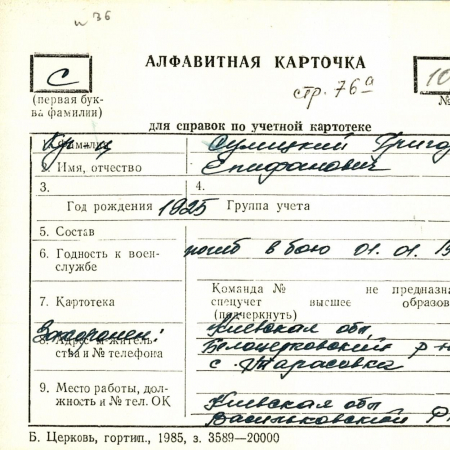 п 36
С
АЛФАВИТНАЯ КАРТОЧКА
10
стр. 76а
(первая бук-
ва фамилии)
№
для справок по учетной картотеке
Кр-ц
1. Фамилия Сулицкий Григо
2. Имя, отчество Епифанович
3. 4.
Год рождения 1925 Группа учета
5. Состав
6. Годность к воен-
службе
погиб в бою 01.01.19
Команда № не предназна
спецучет высшее образов
(подчеркнуть)
7. Картотека
Захоронен:
Киевская обл
8. Адрес м-житель-
ства и № телефона
Белоцерковский р-н
с. Тарасовка
9. Место работы, дол-
жность и № тел. ОК
Киевская обл
Васильковский Р
Б. Церковь, гортип., 1985, з. 3589—20000